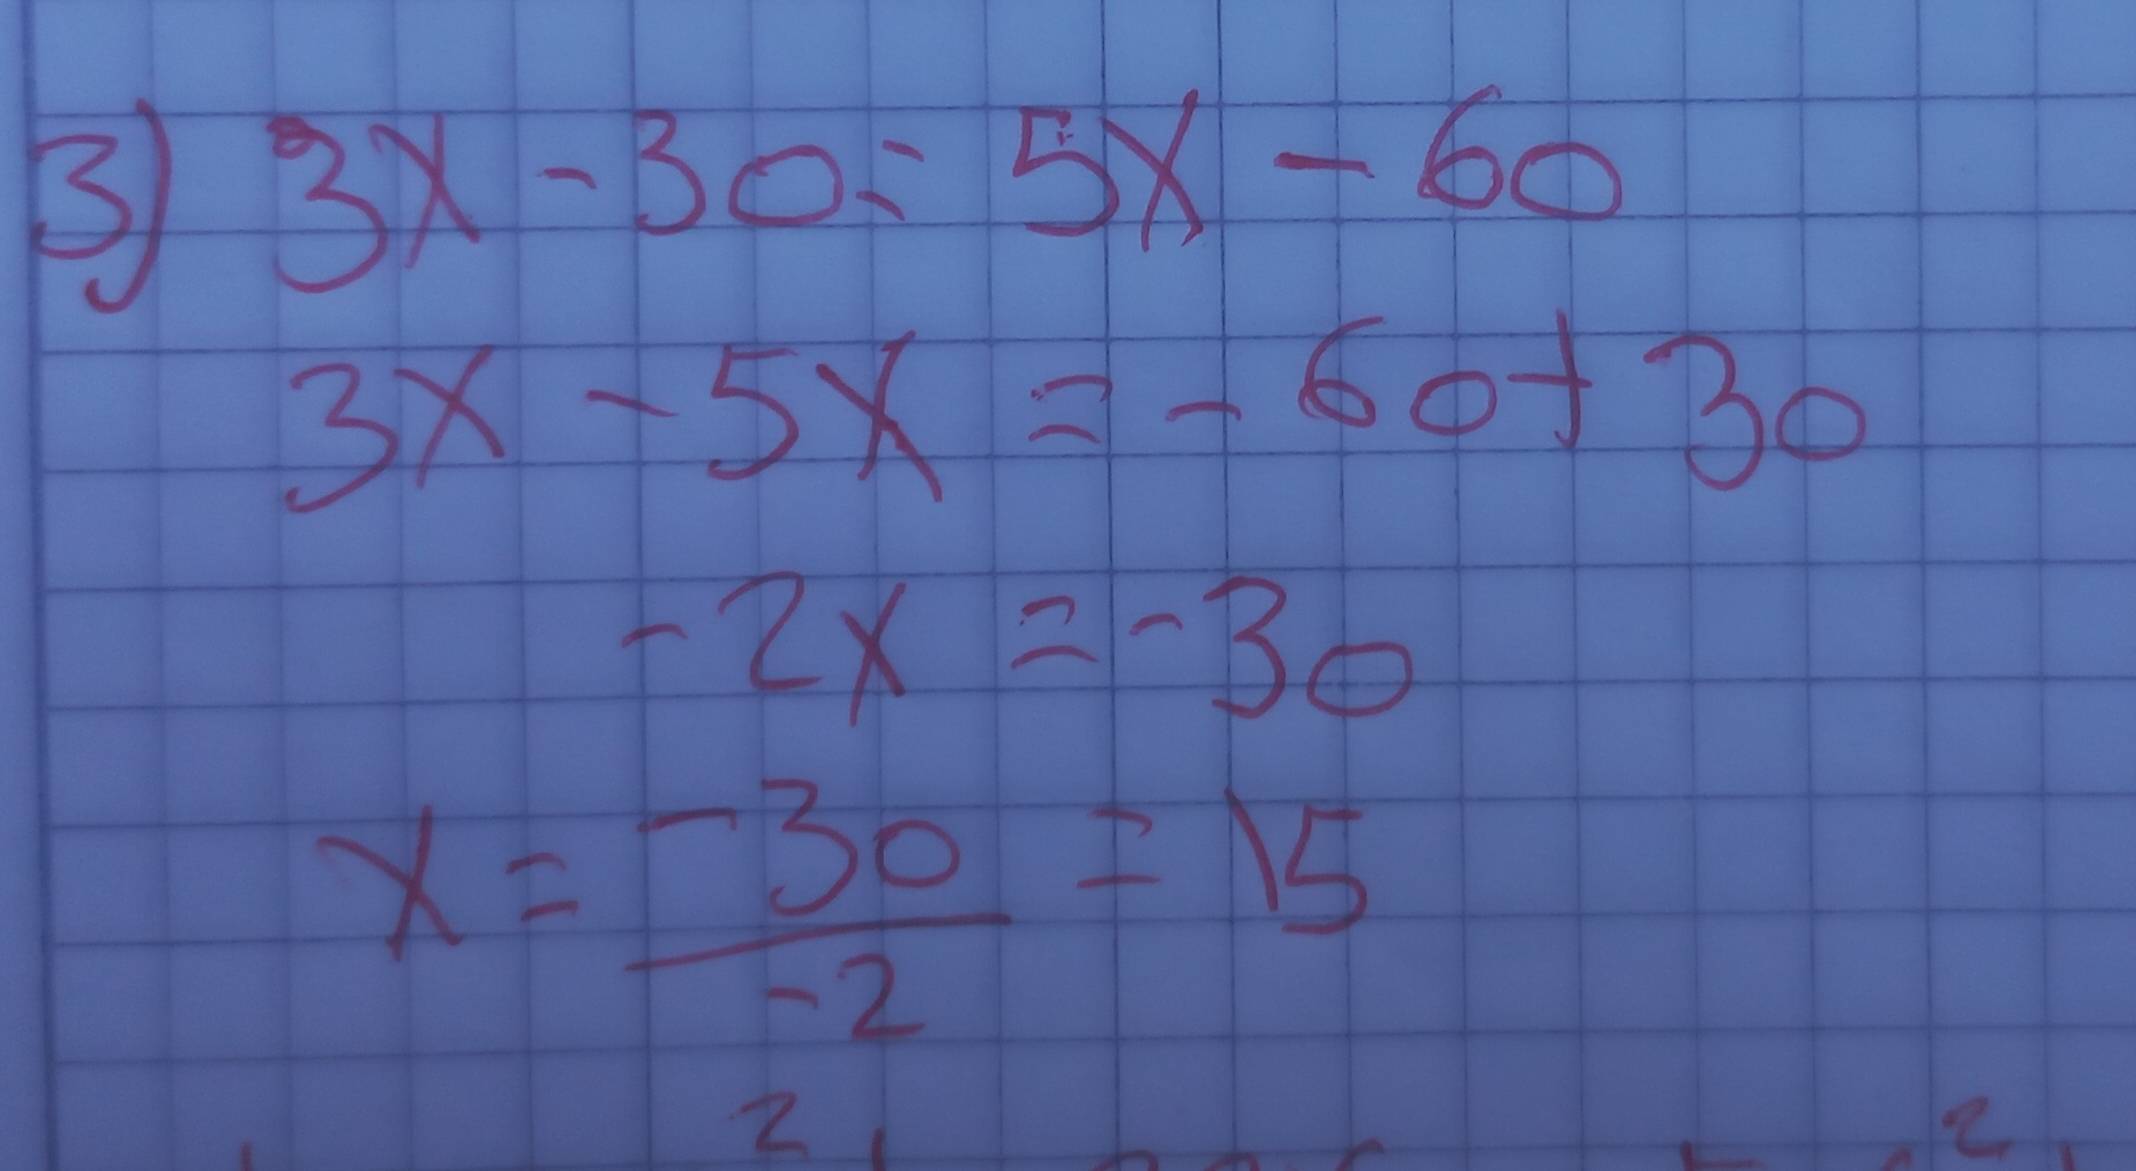 3) 3x - 30 = 5x - 60
3x - 5x = - 60 + 30
- 2x = - 30
x = -30/-2 = 15
2 2